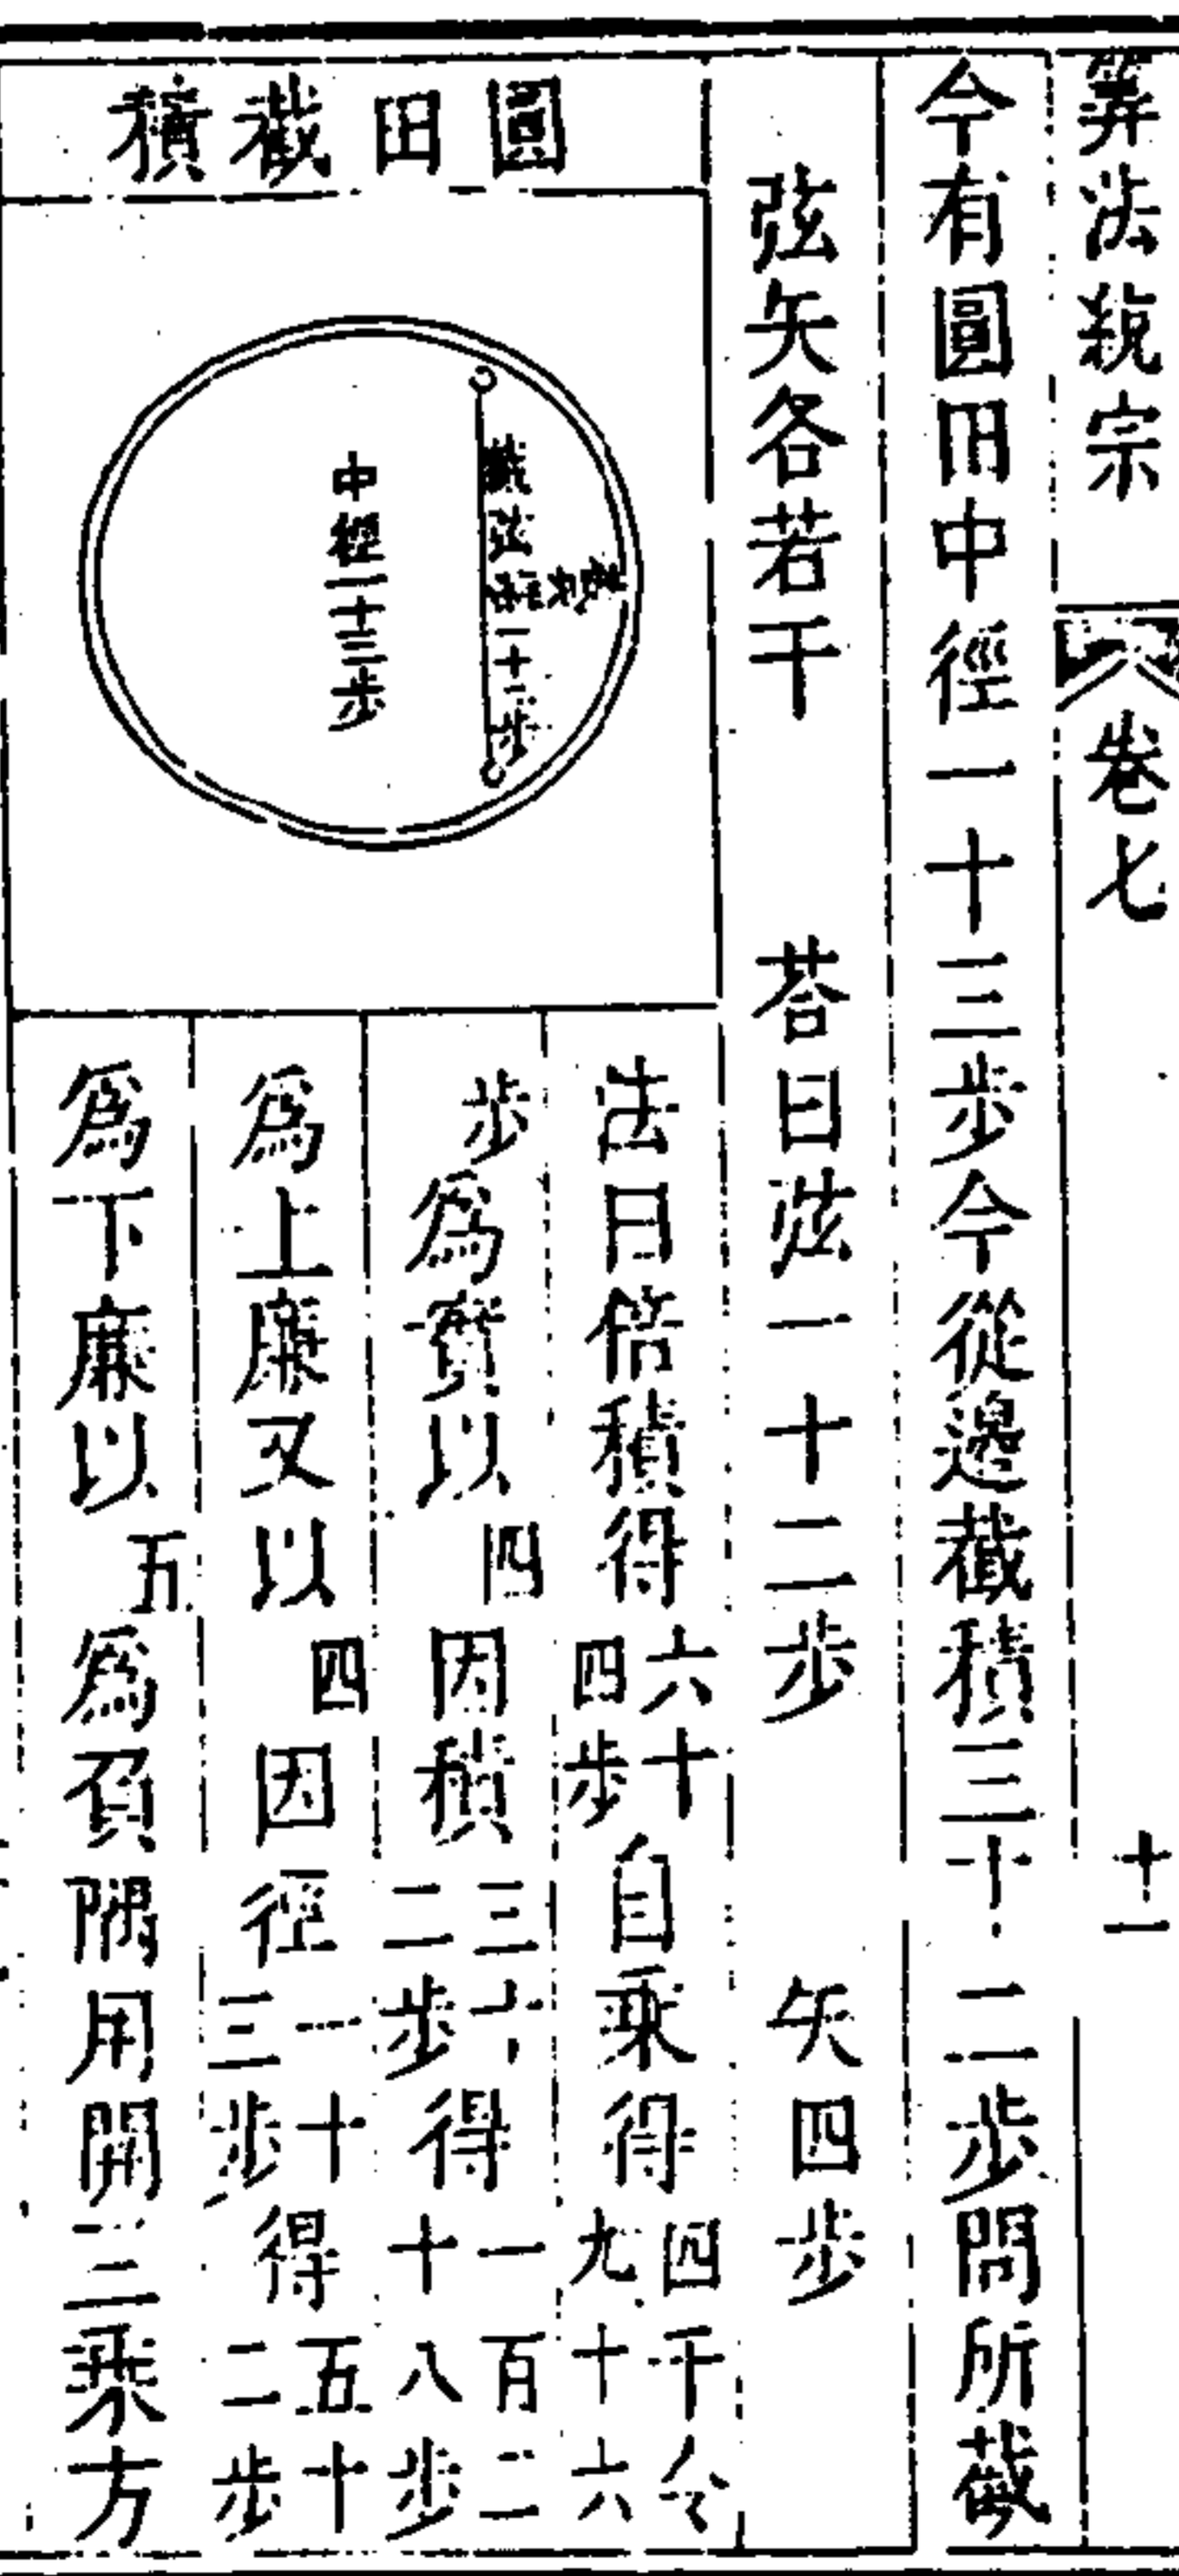 算法統宗 卷七 十一
今有圓田中徑一十三步今從邊截積三十二步問所截
弦矢各若干 荅曰弦一十二步 矢四步
圓田截積
中徑一十三步
截弦
一十二步
法曰倍積得六十四步自乘得四千令九十六
步為實以四因積三十二步得一百二十八步
為上廉又以四因徑一十三步得五十二步
為下廉以五為負隅用開三乘方